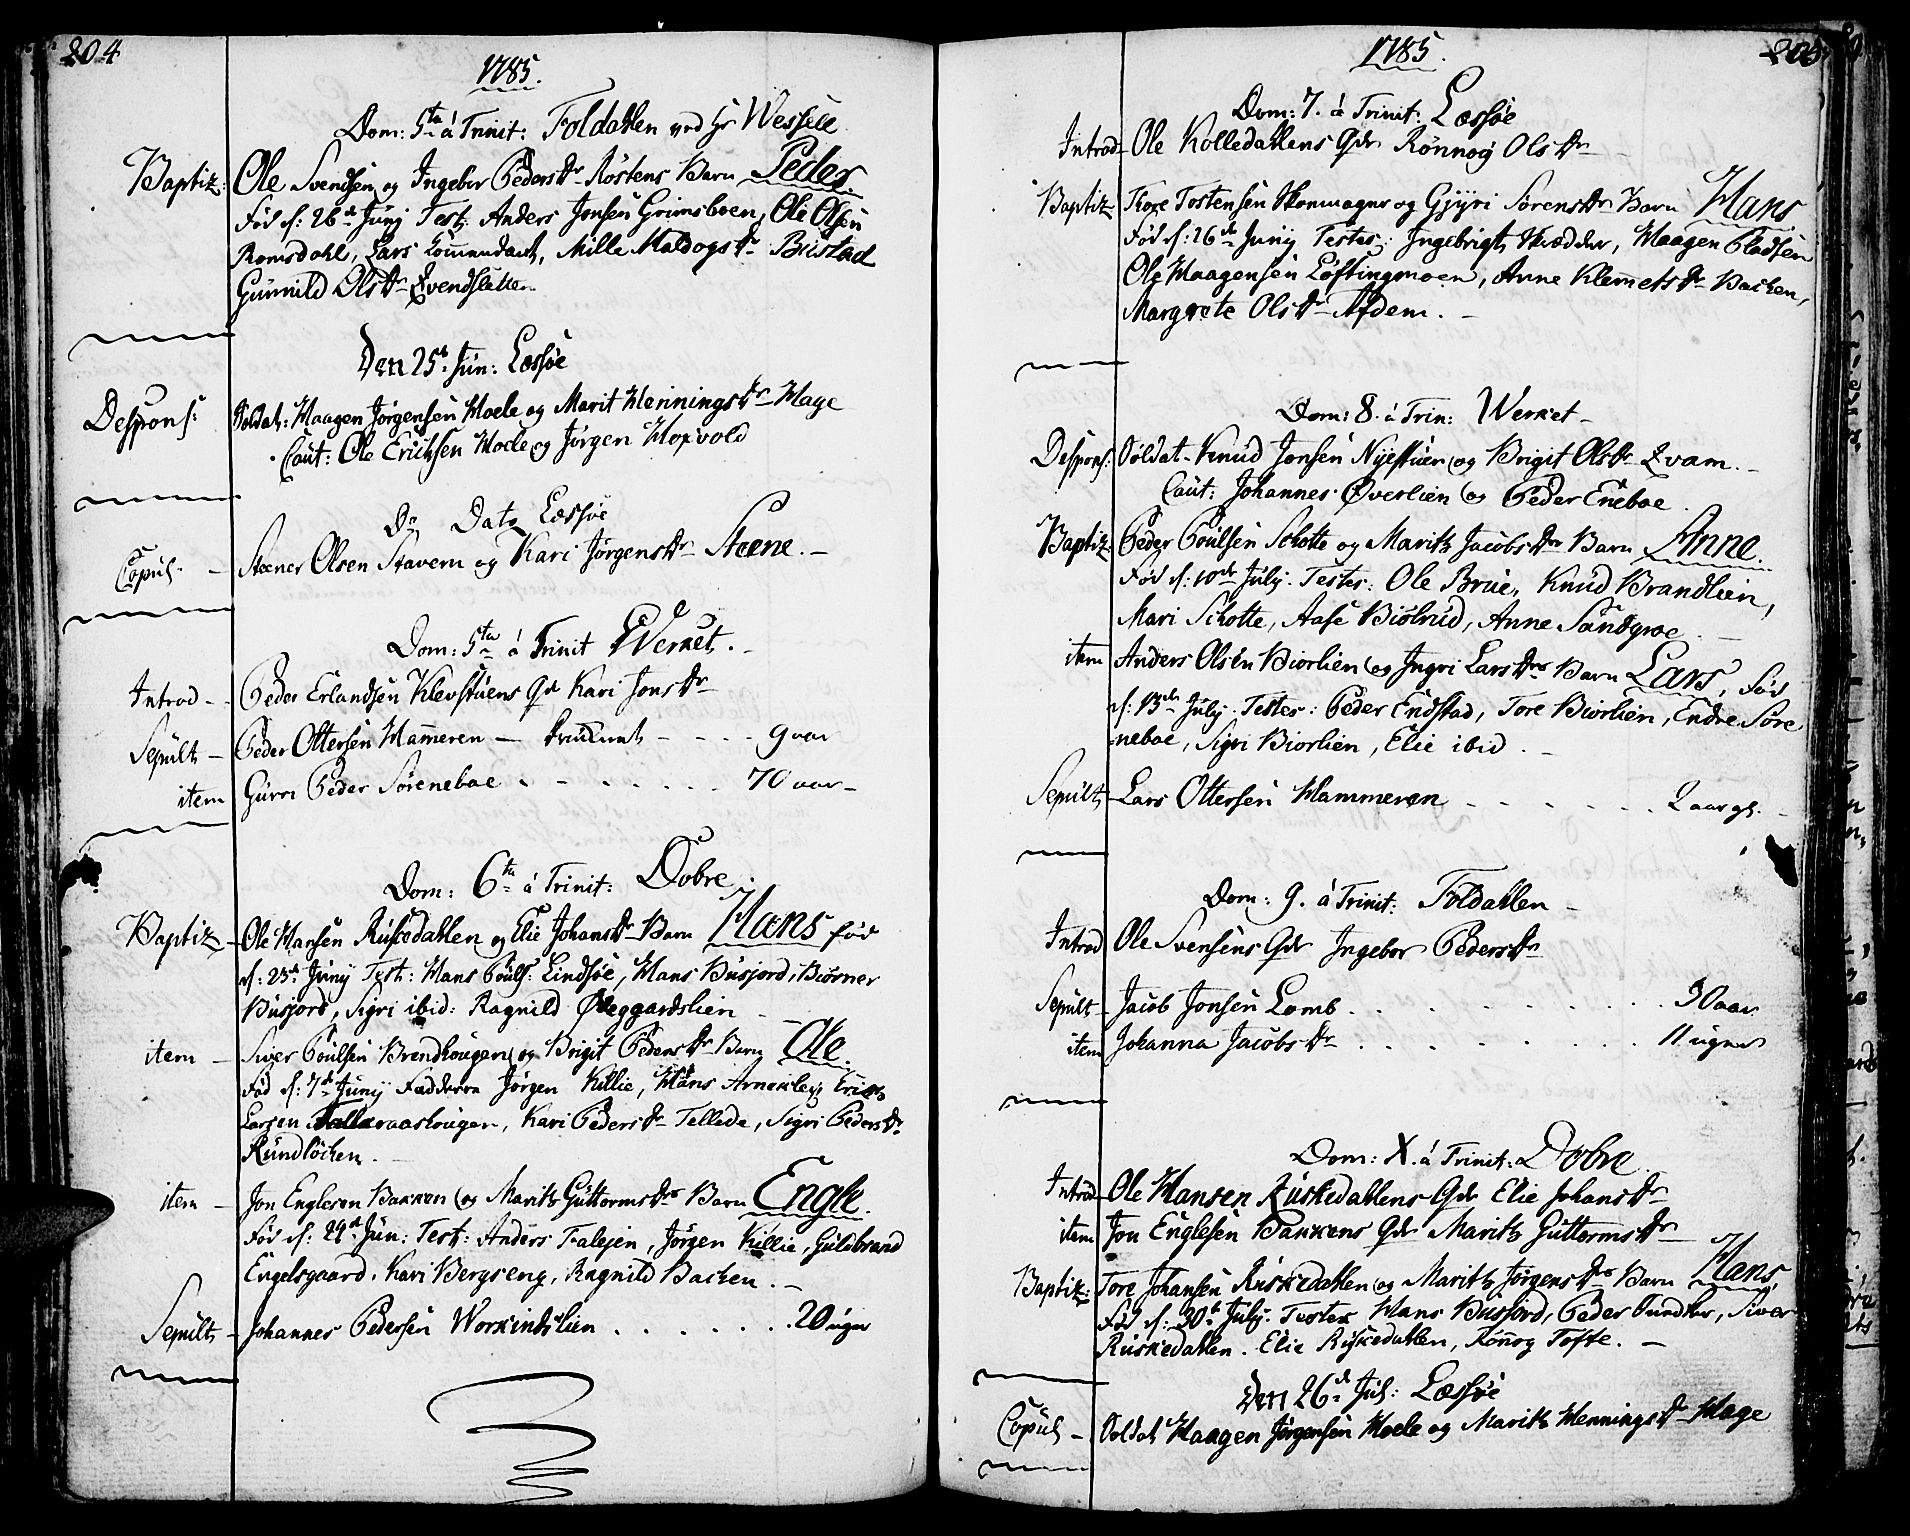 204
1785.
Dom: 5ta á Trinit: Foldahlen ved Hr Wessell
Baptiz: Ole Svendsen og Ingebor Pedersdr Röstens Barn Peder.
Fød d: 26de Junj Test: Anders Jonsen Grimsboen, Ole Olsen
Romsdahl, Lars Commendant, Mille Haldogsdr Bustad
Gunnild Olsdr Evendsletten
Den 25de Jun: Lessøe
Despons: Soldat: Haagen Jørgensen Hoele og Marit Henningsdr Hage
Caut: Ole Erichsen Hoele og Jørgen Hopvold
Do Dato Lessøe
Copul. – Steener Olsen Stavem og Kari Jørgensdr Steene. –
Dom: 5ta á Trinit Werket. –
Introd – Peder Erlandsen Klevstuens Qde Kari Jonsdr
Sepult – Peder Ottersen Hameren – – – – 9 aar
item Gurri Peder Søreneboe . – – – . . . 70 aar –
Dom: 6ta á Trinit: Dobre.
Baptiz – Ole Hansen Ruskedahlen og Elie Johansdr Barn Hans fød
d: 23de Junij Test: Hans Pouls: Lindsøe, Hans Busjord, Biörner
Busjord, Sigri ibid: Ragnild Øveggardslien
item – Siver Poulsen Brendhougen og Brigit Pedersdr Barn Ole.
Fød d: 7de Junij Fadderne Jørgen Killie, Hans Arneklev, Erich
Larsen Tallaraashougen, Kari Pedersdr Tellede, Sigri Pedersdr
Rundlöchen. –
item – Jon Englesen Bakken og Marith Guttormsdr Barn Engle.
Fød d: 29de Jun: Test: Anders Faleien, Jørgen Killie, Guldbrand
Engelsgaard, Kari Bergseng, Ragnild Backen. –
Sepult – Johannes Pedersen Workindslien . . . . . . . 20 uger
205
1785.
Dom: 7. á Trinit: Lessøe
Introd – Ole Kolledahlens Qde Rönnog Olsdr
Baptiz Tore Tostensen Skonmager og Gjyri Sørensdr Barn Hans
Fød d: 26de Junij Testes: Ingebrigt Skrædder, Haagen Pladsen
Ole Haagensen Löftingmoen, Anne Klemetsdr Backen,
Margrete Olsdr Afdem. –
Dom: 8. á Trin: Werket –
Despons: Soldat – Knud Jonsen Nijestuen og Brigit Olsdr Qvam. –
Caut: Johannes Øverlien og Peder Eneboe.
Baptiz: Peder Poulsen Schotte og Marith Jacobsdr Barn Anne.
Fød d: 10de Julij. Testes: Ole Brue, Knud Brandlien,
Mari Schotte, Aase Biölrud, Anne Sandgroe. –
item Anders Olsen Biorlien og Ingri Larsdr Barn Lars, Fød
d: 13de Julij. Testes: Peder Endstad, Tore Biorlien, Endre Søre
neboe, Sigri Biorlien, Elie ibid. –
Sepult – Lars Ottersen Hammeren – . . . . . 2 aar gl. –
Dom: 9. á Trinit: Foldahlen –
Introd Ole Svensens Qde Ingebor Pedersdr
Sepult – Jacob Jonsen Lomb . . . . . . . . 30 aar
item Johanna Jacobsdr . . . . . . . . 11 uger
Dom: X. á Trinit: Dobre.
Introd – Ole Hansen Ruskedahlens Qde Elie Johansdr
item Jon Englesen Bakkens Qde Marith Guttormsdr
Baptiz: Tore Johansen Ruskedahlen og Marith Jørgensdr Barn Hans,
Fød d: 30de Julij. Testes Hans Busjord, Peder Tundther, Siver
Ruskedahlen. Elie Ruskedahlen, Rönnog Tofte. –
Den 26de Jul: Lessøe
Copul – Soldat Haagen Jørgensen Hoele og Marith Henningsdr Hage